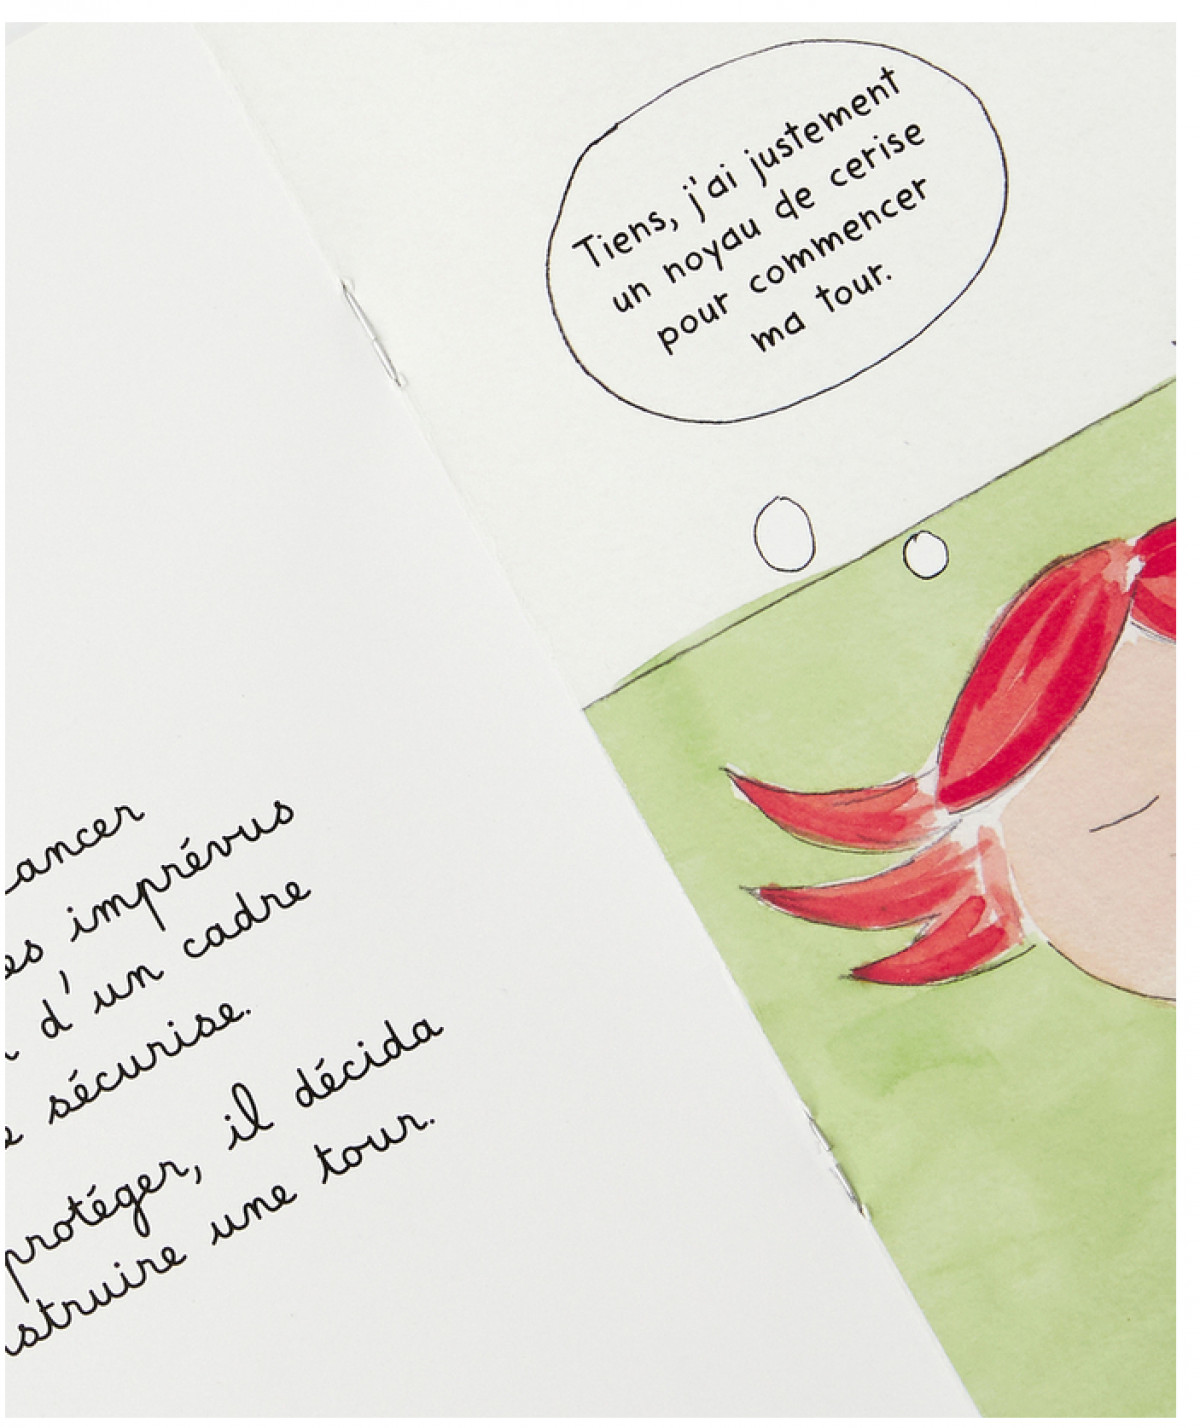 ancer
es imprévus
d'un cadre
sécurise.
protéger, il décida
struire une tour.
Tiens, j'ai justement
un noyau de cerise
pour commencer
ma tour.